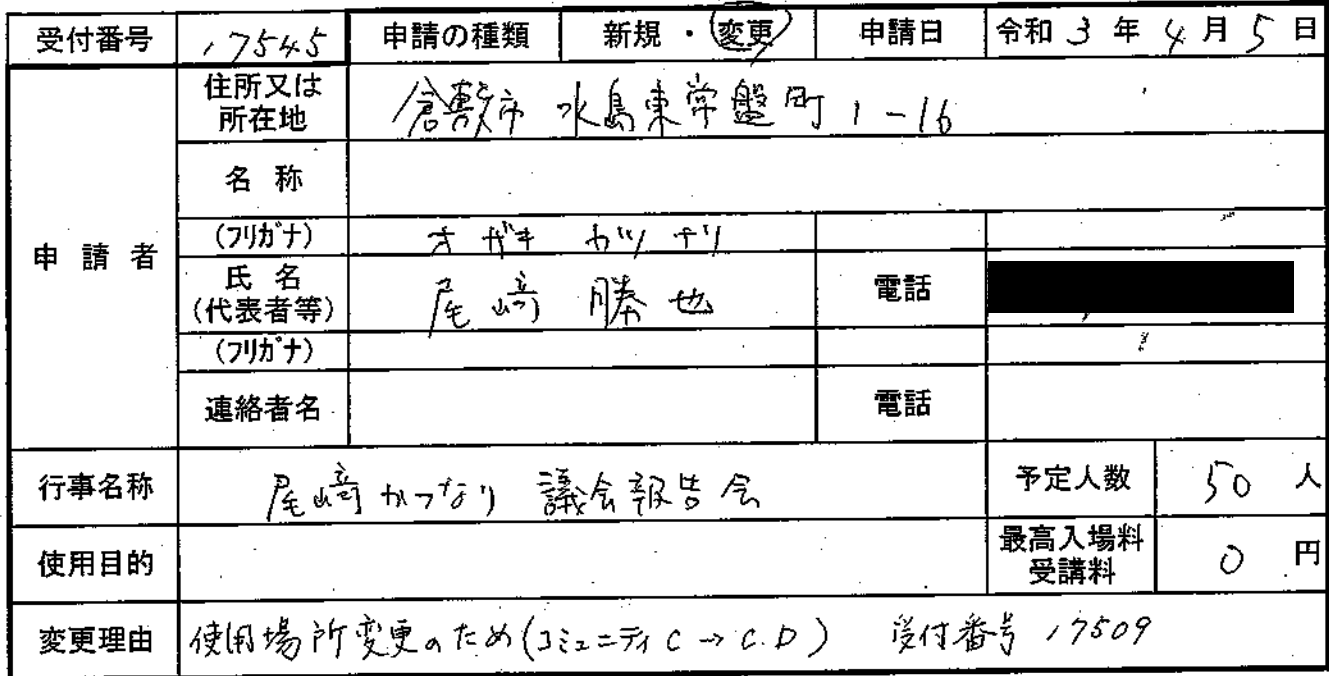 受付番号 17545 申請の種類 新規・変更 申請日 令和 3 年 4 月 5 日
申請者
住所又は所在地 倉敷市 水島東常盤町 1-16
名称
(フリガナ) オザキ カツナリ
氏名(代表者等) 尾﨑 勝也 電話
(フリガナ)
連絡者名 電話
行事名称 尾﨑かつなり 議会報告会 予定人数 50 人
使用目的 最高入場料受講料 0 円
変更理由 使用場所変更のため(コミュニティ C → C.D) 受付番号 17509